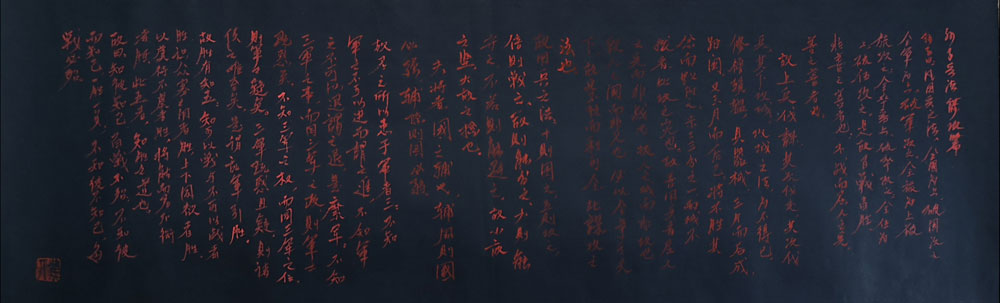 孫子兵法 謀攻篇
孫子曰凡用兵之法全國為上破國次之
全軍為上破軍次之全旅為上破
旅次之全卒為上破卒次之全伍為
上破伍次之是故百戰百勝
非善之善者也不戰而屈人之兵
善之善者也
故上兵伐謀其次伐交其次伐
兵其下攻城攻城之法為不得已
修櫓轒轀具器械三月而後成
距闉又三月而後已將不勝其
忿而蟻附之殺士三分之一而城不
拔者此攻之災也故善用兵者屈人之
兵而非戰也拔人之城而非攻也
毀人之國而非久也必以全爭于天
下故兵不頓而利可全此謀攻之
法也
故用兵之法十則圍之五則攻之
倍則戰之敵則能分之少則能
守之不若則能避之故小敵
之堅大敵之擒也
夫將者國之輔也輔周則國
必強輔隙則國必弱
故君之所以患于軍者三不知
軍之不可以進而謂之進不知軍
之不可以退而謂之退是為縻軍不知
三軍之事而同三軍之政則軍士
惑矣不知三軍之權而同三軍之任
則軍士疑矣三軍既惑且疑則諸
侯之難至矣是謂亂軍引勝
故知勝有五知可以戰與不可以戰者
勝識眾寡之用者勝上下同欲者勝
以虞待不虞者勝將能而君不御
者勝此五者知勝之道也
故曰知彼知己百戰不殆不知彼
而知己一勝一負不知彼不知己每
戰必殆